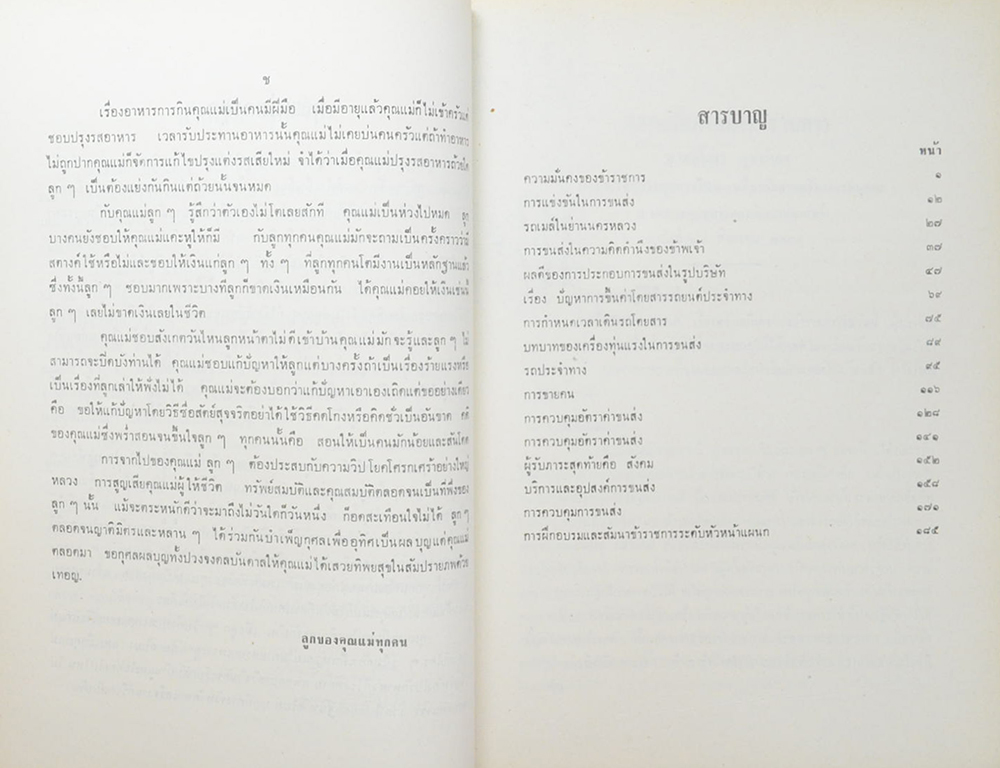 ช
เรื่องอาหารการกินคุณแม่เป็นคนมีฝีมือ เมื่อมีอายุแล้วคุณแม่ก็ไม่เข้าครัวแต่
ชอบปรุงรสอาหาร เวลารับประทานอาหารนั้นคุณแม่ไม่เคยบ่นคนครัวแต่ถ้าทำอาหาร
ไม่ถูกปากคุณแม่ก็จัดการแก้ไขปรุงแต่งรสเสียใหม่ จำได้ว่าเมื่อคุณแม่ปรุงรสอาหารถ้วยใด
ลูก ๆ เป็นต้องแย่งกันกินแต่ถ้วยนั้นจนหมด
กับคุณแม่ลูก ๆ รู้สึกว่าตัวเองไม่โตเลยสักที คุณแม่เป็นห่วงไปหมด ลูก
บางคนยังชอบให้คุณแม่แคะหูให้ก็มี กับลูกทุกคนคุณแม่มักจะถามเป็นครั้งคราวว่ามี
สตางค์ใช้หรือไม่และชอบให้เงินแก่ลูก ๆ ทั้ง ๆ ที่ลูกทุกคนโตมีงานเป็นหลักฐานแล้ว
ซึ่งทั้งนี้ลูก ๆ ชอบมากเพราะบางทีลูกก็ขาดเงินเหมือนกัน ได้คุณแม่คอยให้เงินเช่นนี้
ลูก ๆ เลยไม่ขาดเงินเลยในชีวิต
คุณแม่ชอบสังเกตวันไหนลูกหน้าตาไม่ดีเข้าบ้านคุณแม่มักจะรู้และลูก ๆ ไม่
สามารถจะปิดบังท่านได้ คุณแม่ชอบแก้ปัญหาให้ลูกแต่บางครั้งถ้าเป็นเรื่องร้ายแรงหรือ
เป็นเรื่องที่ลูกเล่าให้ฟังไม่ได้ คุณแม่จะต้องบอกว่าแก้ปัญหาเอาเองเถิดแต่ขออย่างเดียว
คือ ขอให้แก้ปัญหาโดยวิธีซื่อสัตย์สุจริตอย่าได้ใช้วิธีคดโกงหรือคิดชั่วเป็นอันขาด คติ
ของคุณแม่ซึ่งพร่ำสอนจนขึ้นใจลูก ๆ ทุกคนนั้นคือ สอนให้เป็นคนมักน้อยและสันโดษ
การจากไปของคุณแม่ ลูก ๆ ต้องประสบกับความวิปโยคโศรกเศร้าอย่างใหญ่
หลวง การสูญเสียคุณแม่ผู้ให้ชีวิต ทรัพย์สมบัติและคุณสมบัติตลอดจนเป็นที่พึ่งของ
ลูก ๆ นั้น แม้จะตระหนักดีว่าจะมาถึงไม่วันใดก็วันหนึ่ง ก็อดสะเทือนใจไม่ได้ ลูก ๆ
ตลอดจนญาติมิตรและหลาน ๆ ได้ร่วมกันบำเพ็ญกุศลเพื่ออุทิศเป็นผลบุญแด่คุณแม่
ตลอดมา ขอกุศลผลบุญทั้งปวงจงดลบันดาลให้คุณแม่ได้เสวยทิพยสุขในสัมปรายภพด้วย
เทอญ.
ลูกของคุณแม่ทุกคน
สารบาญ
หน้า
ความมั่นคงของข้าราชการ ๑
การแข่งขันในการขนส่ง ๑๒
รถเมล์ในย่านนครหลวง ๒๗
การขนส่งในความคิดคำนึงของข้าพเจ้า ๓๗
ผลดีของการประกอบการขนส่งในรูปบริษัท ๕๗
เรื่อง ปัญหาการขึ้นค่าโดยสารรถยนต์ประจำทาง ๖๙
การกำหนดเวลาเดินรถโดยสาร ๗๕
บทบาทของเครื่องทุ่นแรงในการขนส่ง ๘๙
รถประจำทาง ๙๕
การขายคน ๑๑๖
การควบคุมอัตราค่าขนส่ง ๑๒๘
การควบคุมอัตราค่าขนส่ง ๑๔๑
ผู้รับภาระสุดท้ายคือ สังคม ๑๕๒
บริการและอุปสงค์การขนส่ง ๑๕๘
การควบคุมการขนส่ง ๑๗๑
การฝึกอบรมและสัมนาข้าราชการระดับหัวหน้าแผนก ๑๘๕